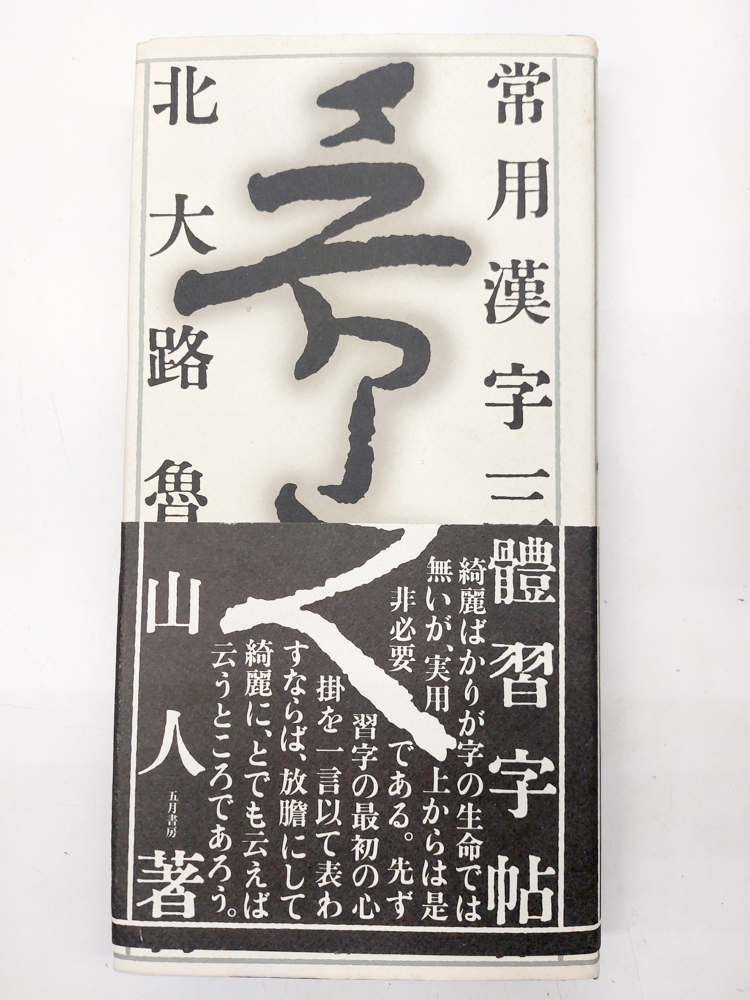 常用漢字三體習字帖
綺麗ばかりが字の生命では
無いが、実用上からは是
非必要である。先ず
習字の最初の心
掛を一言以て表わ
すならば、放膽にして
綺麗に、とでも云えば
云うところであろう。
北大路魯山人著
五月書房